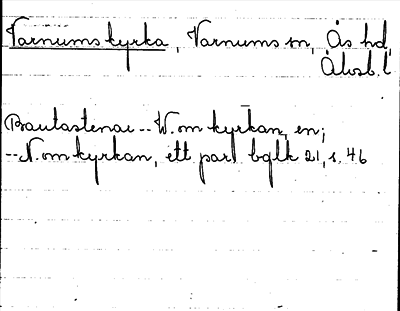 Varnums kyrka, Varnums sn, Ås hd,
Älvsb. l
Bautastenar -- W. om kyrkan, en;
-- N. om kyrkan, ett par. bglk 21, s. 46